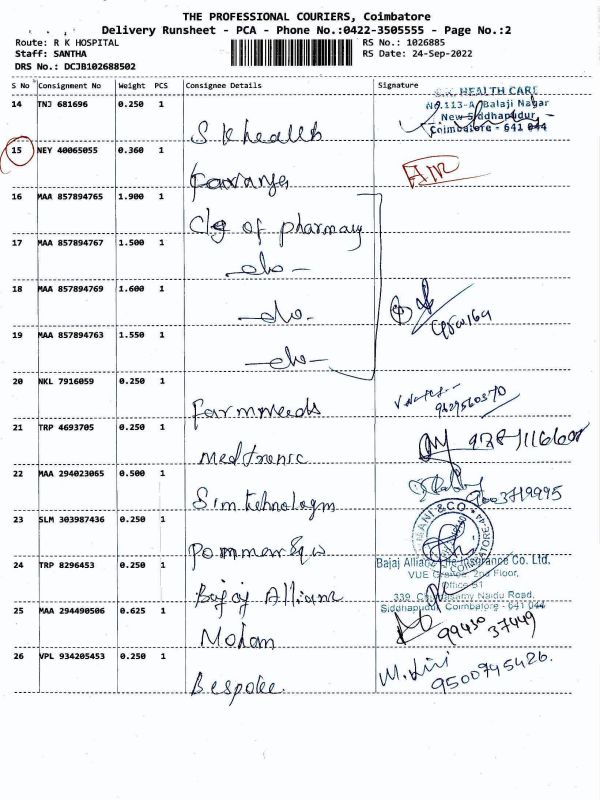 THE PROFESSIONAL COURIERS, Coimbatore
Delivery Runsheet - PCA - Phone No.:0422-3505555 - Page No.:2
Route: R K HOSPITAL RS No.: 1026885
Staff: SANTHA RS Date: 24-Sep-2022
DRS No.: DCJB102688502
S No Consignment No Weight PCS Consignee Details Signature
14 TNJ 681696 0.250 1 S K health
S.K. HEALTH CARE
No.113-A, Balaji Nagar
New Siddhapudur
Coimbatore - 641 044
15 NEY 40065055 0.360 1
16 MAA 857894765 1.900 1 Clg of pharmacy
17 MAA 857894767 1.500 1 -do-
18 MAA 857894769 1.600 1 -do-
19 MAA 857894763 1.550 1 -do-
20 NKL 7916059 0.250 1 farmweeds
21 TRP 4693705 0.250 1 Medtronic
22 MAA 294023065 0.500 1 Sim
9003719995
23 SLM 303987436 0.250 1
MANI & CO
COIMBATORE-44
24 TRP 8296453 0.250 1 Bajaj Allianz
Bajaj Allianz Life Insurance Co. Ltd.
VUE Grande, 2nd Floor,
339, Chinnasamy Naidu Road,
Siddhapudur, Coimbatore - 641 044
25 MAA 294490506 0.625 1 Mohan
99430 37449
26 VPL 934205453 0.250 1 Bespoke.
9500745426.